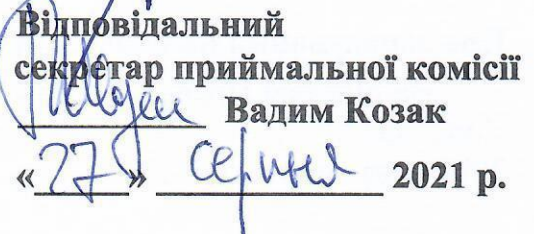 Відповідальний
секретар приймальної комісії
Вадим Козак
«27» серпня 2021 р.